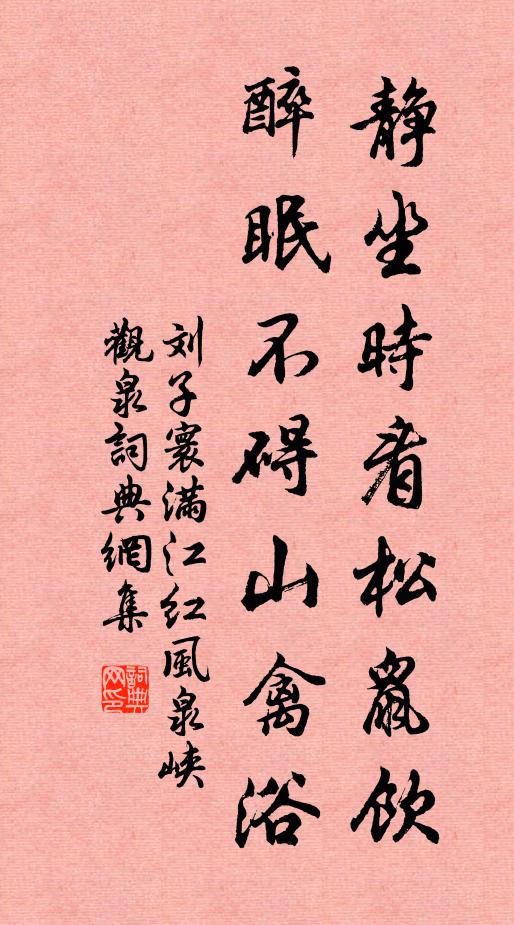 静坐時看松鼠飲
醉眠不碍山禽浴
刘子寰满江红風泉峡
觀泉詞典網集
詞典网印